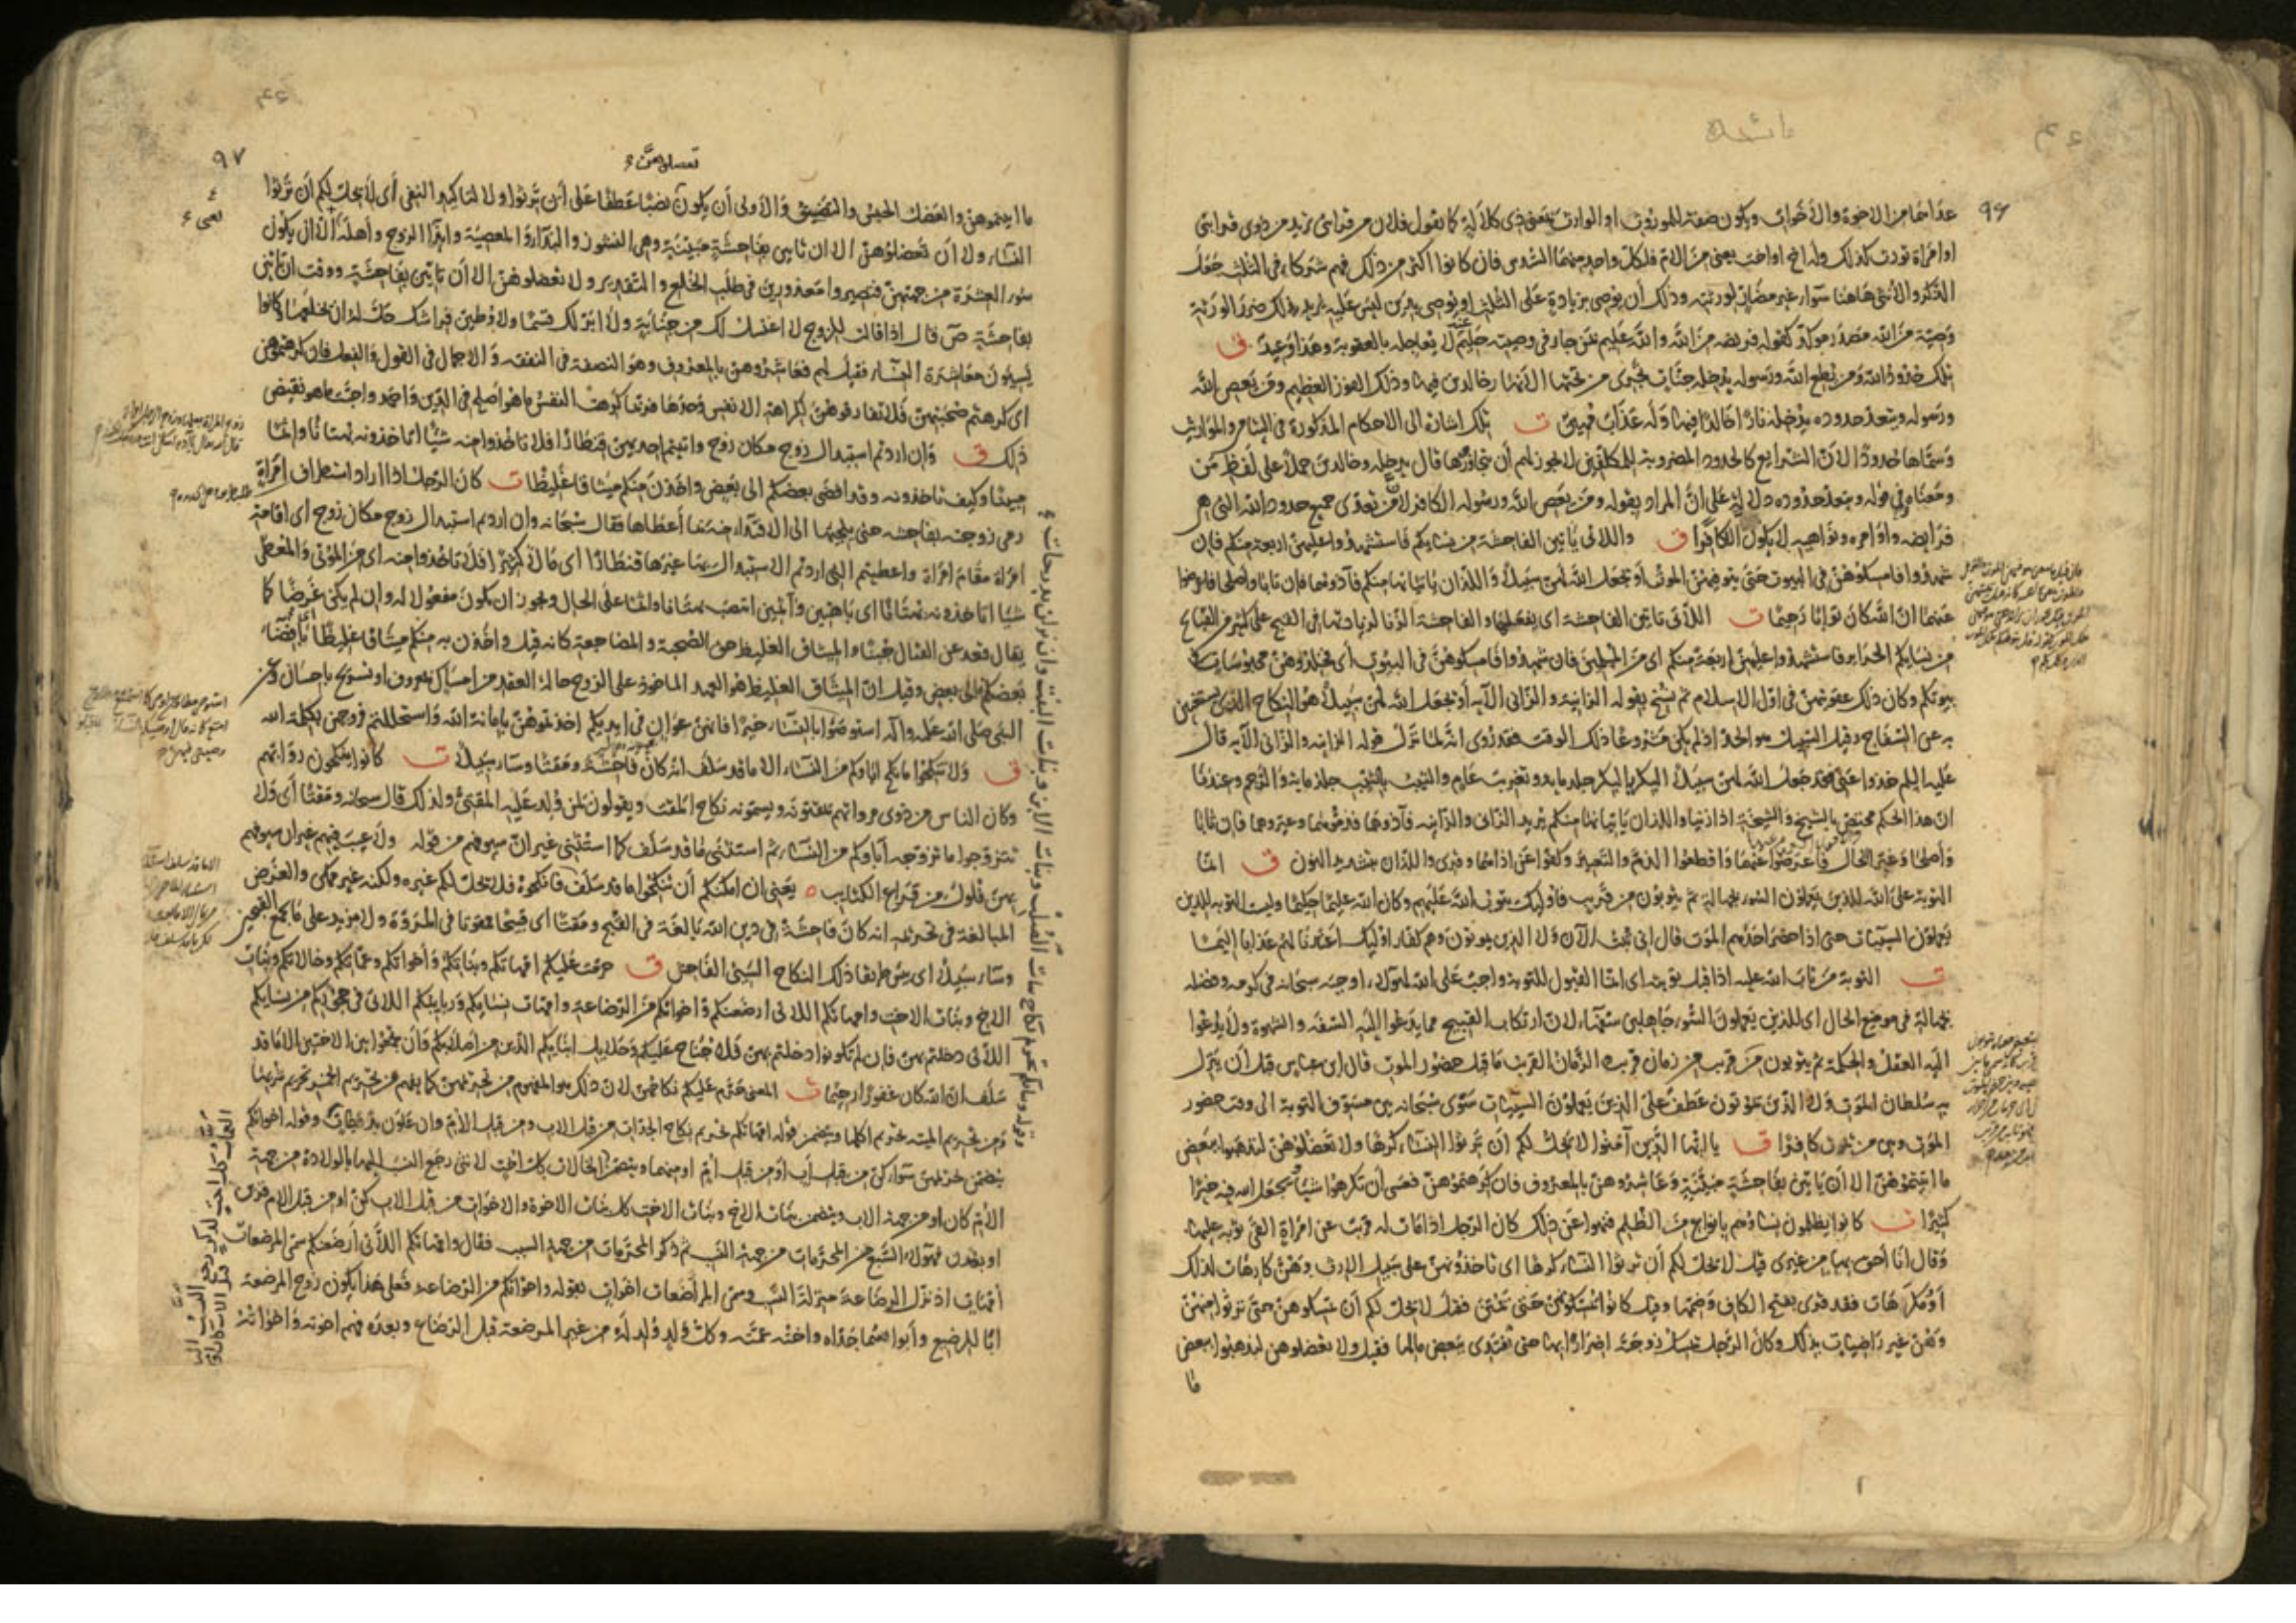 ٩٦
عدا هما من الاخوة والاخوات ويكون صفة للموروث او الوارث بمعنى ذى كلالة كما تقول فلان من قرابتى تريد من ذوى قرابتى
او امراة تورث كذلك وله اخ او اخت يعنى من الام فلكل واحد منهما السدس فان كانوا اكثر من ذلك فهم شركاء فى الثلث جعل
الذكر والانثى هاهنا سواء غير مضار لورثته وذلك ان يوصى بزيادة على الثلث او يوصى بدين ليس عليه يريد بذلك ضرر الورثة
وصية من الله مصدر موكد كقوله فريضة من الله والله عليم بمن جار فى وصيته حليم لا يعاجله بالعقوبة وهذا وعيد ق
تلك حدود الله ومن يطع الله ورسوله يدخله جنات تجرى من تحتها الانهار خالدين فيها وذلك الفوز العظيم ومن يعص الله
ورسوله ويتعد حدوده يدخله نارا خالدا فيها وله عذاب مهين ت تلك اشارة الى الاحكام المذكورة فى اليتامى والمواريث
وسماها حدودا لان الشرايع كالحدود المضروبة للمكلفين لا يجوز لهم ان يتجاوزها قال يدخله وخالدين حملا على لفظ من
ومعناه وفى قوله ويتعد حدوده دلالة على ان المراد بقوله ومن يعص الله ورسوله الكافر لان من تعدى جميع حدود الله التى هى
فرايضه واوامره ونواهيه لا يكون الا كافرا ق واللاتى ياتين الفاحشة من نسايكم فاستشهدوا عليهن اربعة منكم فان
شهدوا فامسكوهن فى البيوت حتى يتوفيهن الموت او يجعل الله لهن سبيلا واللذان ياتيانها منكم فآذوهما فان تابا واصلحا فاعرضوا
عنهما ان الله كان توابا رحيما ت اللاتى ياتين الفاحشة اى يفعلنها والفاحشة الزنا لزيادتها فى القبح على كثير من القبايح
من نسايكم الحراير فاستشهدوا عليهن اربعة منكم اى من المسلمين فان شهدوا فامسكوهن فى البيوت اى فخلدوهن محبوسات فى
بيوتكم وكان ذلك عقوبتهن فى اول الاسلام ثم نسخ بقوله الزانية والزانى الآية او يجعل الله لهن سبيلا هو النكاح الذى يستغنين
به عن السفاح وقيل السبيل هو الحد اذ لم يكن مشروعا ذلك الوقت فقد روى انه لما نزل قوله الزانية والزانى الآية قال
عليه السلم خذوا عنى قد جعل الله لهن سبيلا البكر بالبكر جلد ماية وتغريب عام والثيب بالثيب جلد ماية والرجم وعندنا
ان هذا الحكم مختص بالشيخ والشيخة اذا زنيا واللذان ياتيانها منكم يريد الزانى والزانية فآذوهما فذموهما وعيروهما فان تابا
واصلحا وغيرا الحال فاعرضوا عنهما واقطعوا الذم والتعيير وكفوا عن اذاهما وقرى واللذان بتشديد النون ق انما
التوبة على الله للذين يعملون السوء بجهالة ثم يتوبون من قريب فاوليك يتوب الله عليهم وكان الله عليما حكيما وليست التوبة للذين
يعملون السيئات حتى اذا حضر احدهم الموت قال انى تبت الآن ولا الذين يموتون وهم كفار اوليك اعتدنا لهم عذابا اليما
ت التوبة من تاب الله عليه اذا قبل توبته اى انما القبول للتوبة واجب على الله لهولاء اوجبه سبحانه فى كرمه وفضله
بجهالة فى موضع الحال اى للذين يعملون السوء جاهلين سفهاء لان ارتكاب القبيح مما يدعوا اليه السفه والشهوة ولا يدعوا
اليه العقل والحكمة ثم يتوبون من قريب من زمان قريب الزمان القريب ما قبل حضور الموت قال ابن عباس قبل ان ينزل
به سلطان الموت ولا الذين يموتون عطف على الذين يعملون السيئات سوى سبحانه بين مسوف التوبة الى وقت حضور
الموت وبين من يموت كافرا ق يا ايها الذين آمنوا لا يحل لكم ان ترثوا النساء كرها ولا تعضلوهن لتذهبوا ببعض
ما آتيتموهن الا ان ياتين بفاحشة مبينة وعاشروهن بالمعروف فان كرهتموهن فعسى ان تكرهوا شيئا ويجعل الله فيه خيرا
كثيرا ت كانوا يظلمون نساءهم بانواع من الظلم فنهوا عن ذلك كان الرجل اذا مات له قريب عن امراة القى ثوبه عليها
وقال انا احق بها من غيرى فقيل لا يحل لكم ان ترثوا النساء كرها اى تاخذوهن على سبيل الارث وهن كارهات لذلك
او مكرهات فقد قرى بفتح الكاف وضمها وقيل كانوا يمسكونهن حتى يمتن فقيل لا يحل لكم ان تمسكوهن حتى ترثوا منهن
وهن غير راضيات بذلك وكان الرجل يمسك زوجته اضرارا بها حتى تفتدى ببعض مالها فقيل ولا تعضلوهن لتذهبوا ببعض
ما
٩٧
ما آتيتموهن والعضل الحبس والتضييق والاولى ان يكون نصبا عطفا على ان ترثوا ولا لتاكيد النفى اى لا يحل لكم ان ترثوا
النساء ولا ان تعضلوهن الا ان ياتين بفاحشة مبينة وهى النشوز والبذاءة المعصية وايذاء الزوج واهله الا ان يكون
سوء العشرة من جهتهن فتصيروا معذورين فى طلب الخلع والتقدير ولا تعضلوهن الا ان ياتين بفاحشة ووقت ان ياتين
بفاحشة ص قال اذا قالت للزوج لا اغتسل لك من جنابة ولا ابر لك قسما ولاوطين فراشك حل له ان يخلعها كانوا
يسيون معاشرة النساء فقيل لهم فعاشروهن بالمعروف وهو النصفة فى النفقة والاجمال فى القول والفعل فان كرهتموهن
اى كرهتم صحبتهن فلا تفارقوهن لكراهة الانفس وحدها فربما كرهت النفس ما هو اصلح فى الدين واحمد واحبت ما هو نقيض
ذلك ق وان اردتم استبدال زوج مكان زوج وآتيتم احديهن قنطارا فلا تاخذوا منه شيئا اتاخذونه بهتانا واثما
مبينا وكيف تاخذونه وقد افضى بعضكم الى بعض واخذن منكم ميثاقا غليظا ت كان الرجل اذا اراد استطراف امراة
رمى زوجته بفاحشة حتى يلجئها الى الافتداء منه بما اعطاها فقال سبحانه وان اردتم استبدال زوج مكان زوج اى اقامة
امراة مقام امراة واعطيتم التى اردتم الاستبدال بها غيرها قنطارا اى مالا كثيرا فلا تاخذوا منه اى من الموتى والمعطى
شيئا اتاخذونه بهتانا اى باهتين وآثمين انتصب بهتانا واثما على الحال ويجوز ان يكون مفعولا له وان لم يكن غرضا كما
يقال قعد عن القتال جبنا والميثاق الغليظ حق الصحبة والمضاجعة كانه قيل واخذن به منكم ميثاقا غليظا بافضاء
بعضكم الى بعض وقيل ان الميثاق الغليظ هو العهد الماخوذ على الزوج حالة العقد من امساك بمعروف او تسريح باحسان وعن
النبى صلى الله عليه وآله استوصوا بالنساء خيرا فانهن عوان فى ايديكم اخذتموهن بامانة الله واستحللتم فروجهن بكلمة الله
ق ولا تنكحوا ما نكح آباؤكم من النساء الا ما قد سلف انه كان فاحشة ومقتا وساء سبيلا ت كانوا ينكحون روابهم
وكان الناس من ذوى مرواتهم يمقتونه ويسمونه نكاح المقت ويقولون لمن ولد عليه المقتى ولذلك قال سبحانه ومقتا اى ولا
تتزوجوا ما تزوجه آباؤكم من النساء ثم استثنى ما قد سلف كما استثنى غير ان سيوفهم من قوله ولا عيب فيهم غير ان سيوفهم
بهن فلول من قراع الكتايب ٥ يعنى ان امكنكم ان تنكحوا ما قد سلف فانكحوه فلا يحل لكم غيره ولكنه غير ممكن والغرض
المبالغة فى تحريمه انه كان فاحشة فى دين الله بالغة فى القبح ومقتا اى قبيحا ممقوتا فى المروة ولا مزيد على ما يجمع القبحين
وساء سبيلا اى بئس طريقا ذلك النكاح السيئ الفاحش ق حرمت عليكم امهاتكم وبناتكم واخواتكم وعماتكم وخالاتكم وبنات
الاخ وبنات الاخت وامهاتكم اللاتى ارضعنكم واخواتكم من الرضاعة وامهات نسايكم وربايبكم اللاتى فى حجوركم من نسايكم
اللاتى دخلتم بهن فان لم تكونوا دخلتم بهن فلا جناح عليكم وحلايل ابنايكم الذين من اصلابكم وان تجمعوا بين الاختين الا ما قد
سلف ان الله كان غفورا رحيما ت المعنى حرم عليكم نكاحهن لان ذلك هو المفهوم من تحريمهن كما يفهم من تحريم الخمر تحريم شربها
ومن تحريم الميتة تحريم اكلها ويتضمن قوله امهاتكم تحريم نكاح الجدات من قبل الاب ومن قبل الام وان علون بدرجات وقوله اخواتكم
يتضمن تحريمهن سواء كن من قبل اب او من قبل ام او منهما ويتضمن الخالات كل اخت لانثى رجع النسب اليها بالولادة من جهة
الام كان او من جهة الاب ويتضمن بنات الاخ وبنات الاخت كل بنات الاخوة والاخوات من قبل الاب كن او من قبل الام قربن
او بعدن فهولاء السبع من المحرمات من جهة النسب ثم ذكر المحرمات من جهة السبب فقال وامهاتكم اللاتى ارضعنكم سمى المرضعات
امهات اذ نزل الرضاعة منزلة النسب وسمى المراضعات اخوات بقوله واخواتكم من الرضاعة فعلى هذا يكون زوج المرضعة
ابا للرضيع وابواهما جداه واخته عمته وكل ولد ولد له من غير المرضعة قبل الرضاع وبعده فهم اخوته واخواته